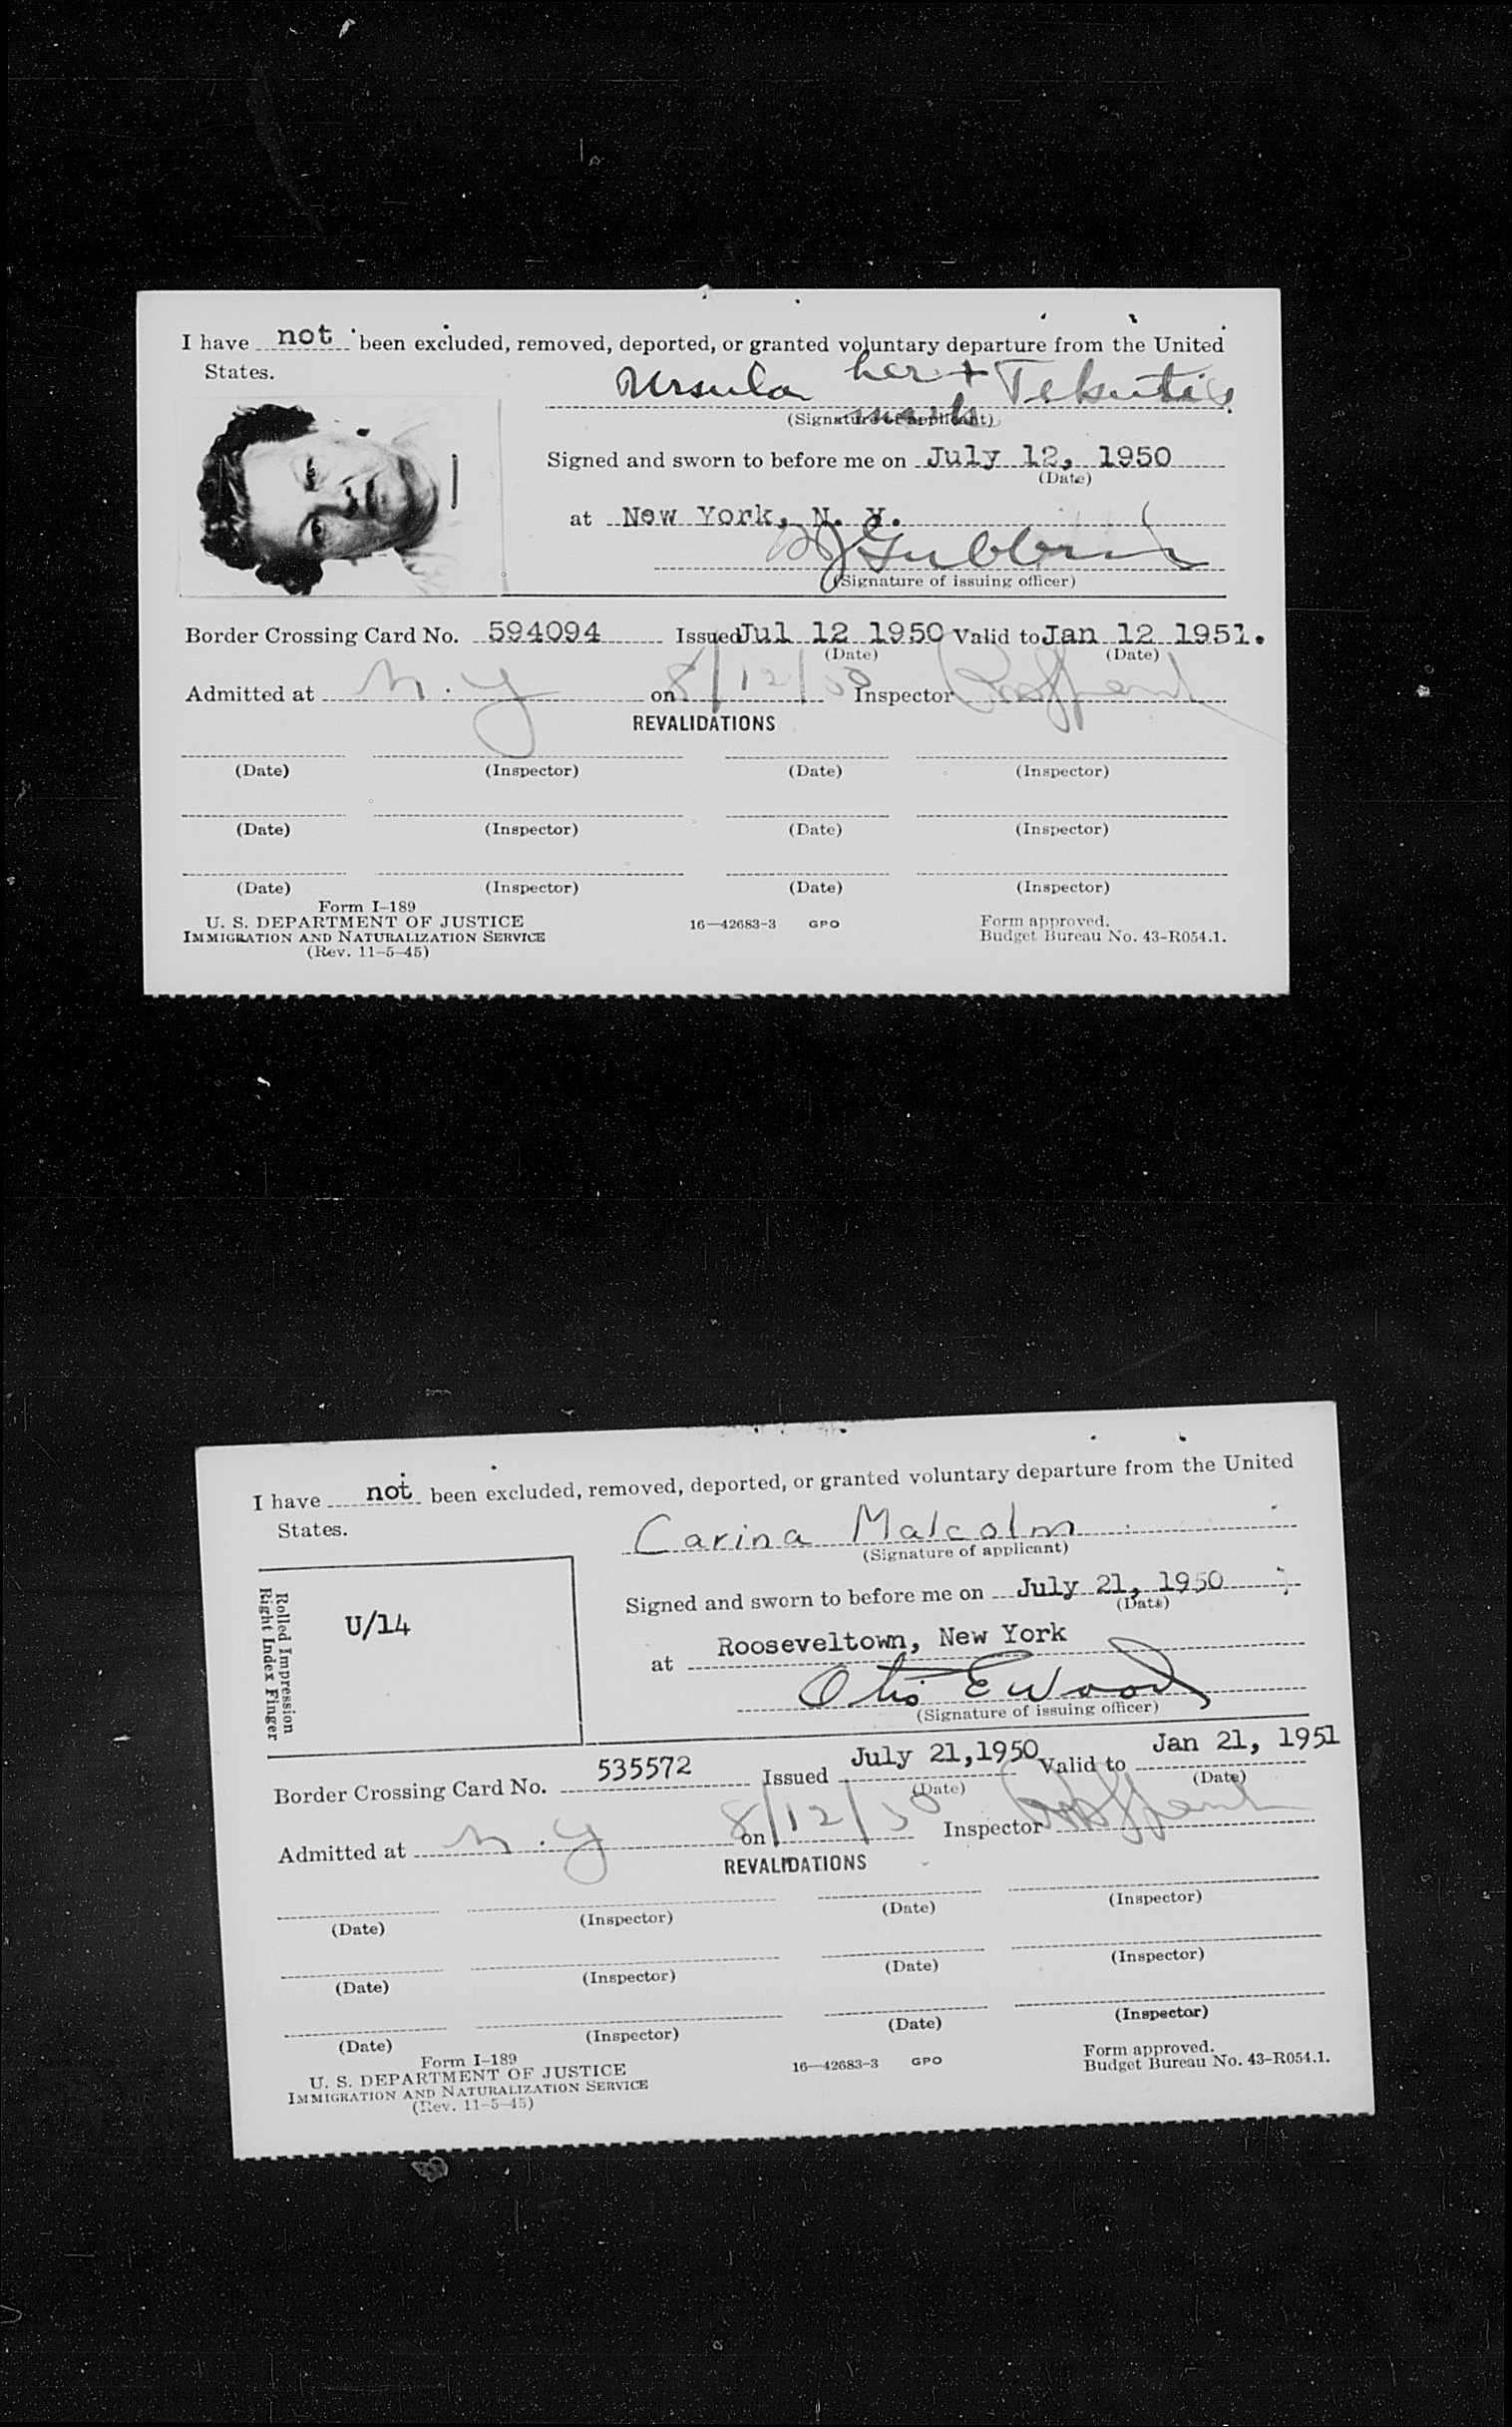 I have not been excluded, removed, deported, or granted voluntary departure from the United
States.
Ursula her + Tekutis
mark
(Signature of applicant)
Signed and sworn to before me on July 12, 1950
(Date)
at New York, N. Y.
(Signature of issuing officer)
Border Crossing Card No. 594094 Issued Jul 12 1950 Valid to Jan 12 1951.
(Date) (Date)
Admitted at N.Y on 8/12/50 Inspector
REVALIDATIONS
(Date) (Inspector) (Date) (Inspector)
(Date) (Inspector) (Date) (Inspector)
(Date) (Inspector) (Date) (Inspector)
Form I-189
U. S. DEPARTMENT OF JUSTICE 16—42683-3 GPO Form approved.
IMMIGRATION AND NATURALIZATION SERVICE Budget Bureau No. 43-R054.1.
(Rev. 11-5-45)
I have not been excluded, removed, deported, or granted voluntary departure from the United
States.
Carina Malcolm
(Signature of applicant)
Rolled Impression
Right Index Finger
U/14
Signed and sworn to before me on July 21, 1950
(Date)
at Rooseveltown, New York
Otis E Wood
(Signature of issuing officer)
Border Crossing Card No. 535572 Issued July 21,1950 Valid to Jan 21, 1951
(Date) (Date)
Admitted at N.Y on 8/12/50 Inspector
REVALIDATIONS
(Date) (Inspector) (Date) (Inspector)
(Date) (Inspector) (Date) (Inspector)
(Date) (Inspector) (Date) (Inspector)
Form I-189
U. S. DEPARTMENT OF JUSTICE 16—42683-3 GPO Form approved.
IMMIGRATION AND NATURALIZATION SERVICE Budget Bureau No. 43-R054.1.
(Rev. 11-5-45)